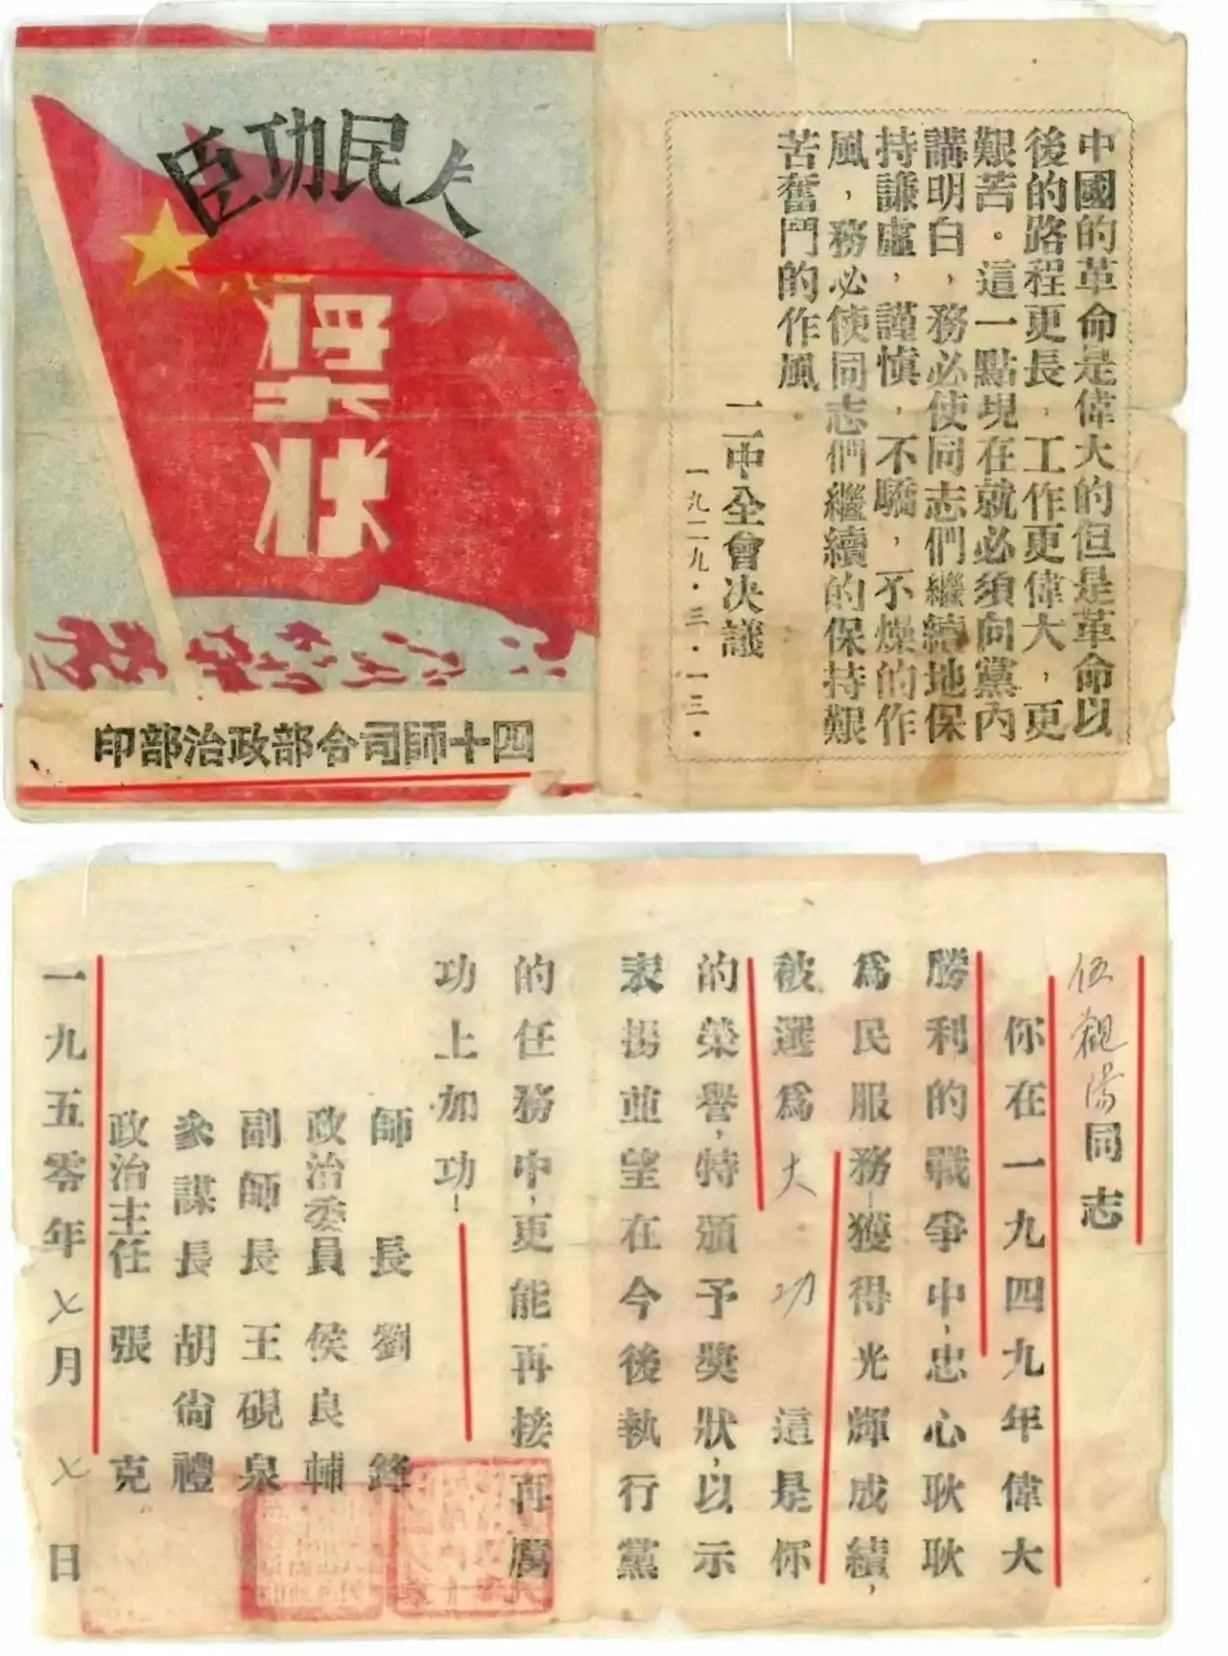 人民功臣
獎狀
四十師司令部政治部印
中國的革命是偉大的但是革命以
後的路程更長，工作更偉大，更
艱苦。這一點現在就必須向黨內
講明白，務必使同志們繼續地保
持謙虛，謹慎，不驕，不燥的作
風，務必使同志們繼續的保持艱
苦奮鬥的作風。
二中全會決議
一九二九·三·一三·
同志
你在一九四九年偉大
勝利的戰爭中，忠心耿耿
為民服務！獲得光輝成績，
被選為大功這是你
的榮譽，特頒予獎狀，以示
表揚並望在今後執行黨
的任務中，更能再接再厲
功上加功！
師長劉鋒
政治委員侯良輔
副師長王硯泉
參謀長胡尙禮
政治主任張克
一九五零年七月七日